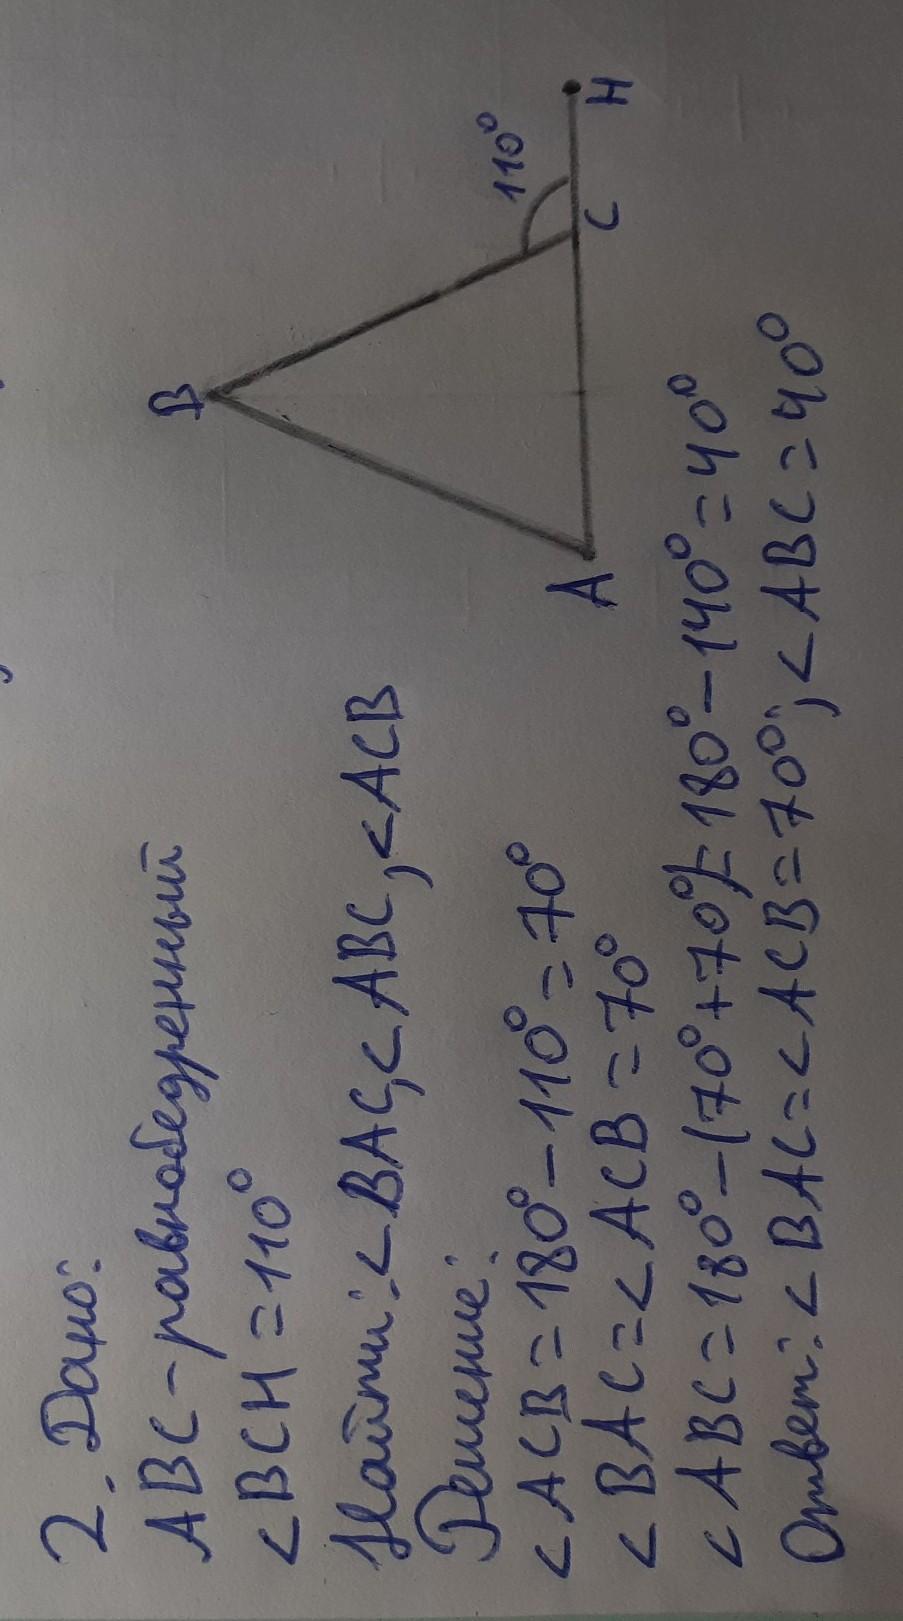 2. Дано:
ABC - равнобедренный
<BCH = 110°
Найти: <BAC, <ABC, <ACB
Решение:
<ACB = 180° - 110° = 70°
<BAC = <ACB = 70°
<ABC = 180° - (70° + 70°) = 180° - 140° = 40°
Ответ: <BAC = <ACB = 70°; <ABC = 40°
B
110°
A
C
H